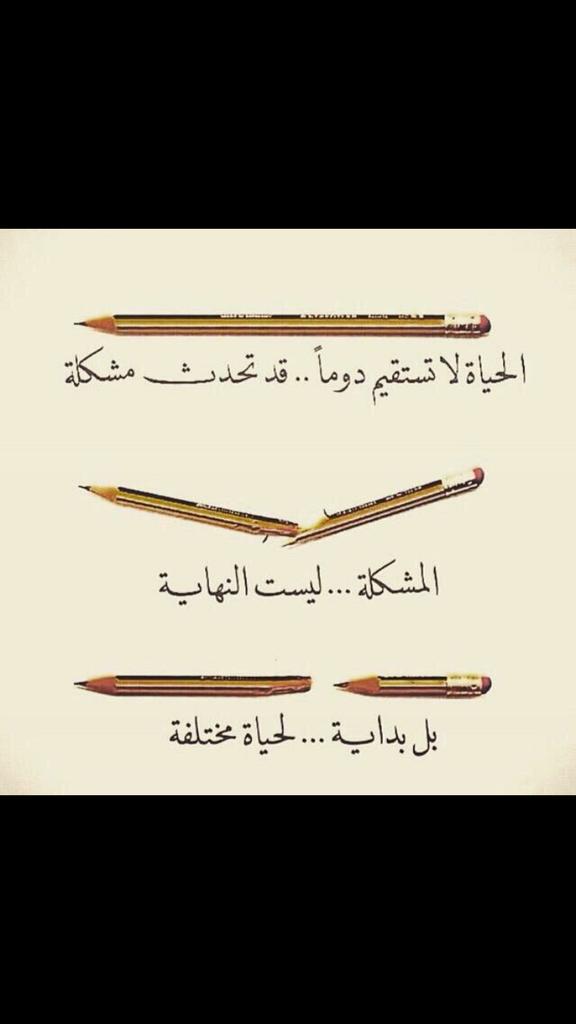 الحياة لا تستقيم دوماً .. قد تحدث مشكلة
المشكلة ... ليست النهاية
بل بداية ... لحياة مختلفة